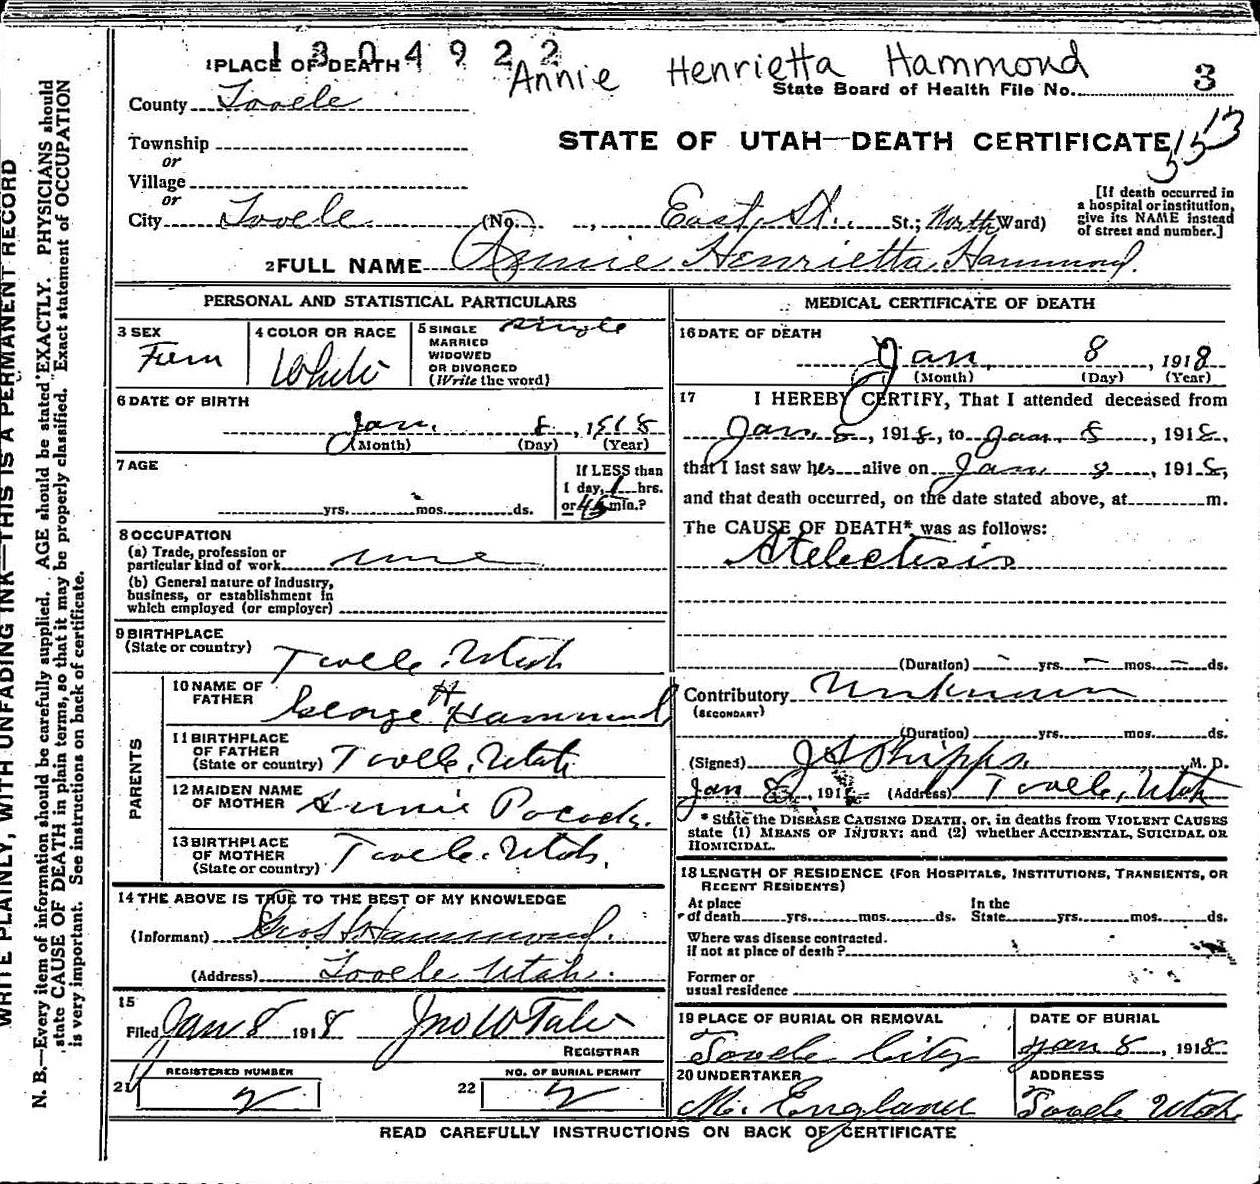 1304922
1 PLACE OF DEATH Annie Henrietta Hammond
State Board of Health File No. 3
County Tooele
STATE OF UTAH—DEATH CERTIFICATE
Township
or
Village
or
City Tooele (No. , East St. St.; North Ward)
[If death occurred in
a hospital or institution,
give its NAME instead
of street and number.]
2 FULL NAME Annie Henrietta Hammond.
PERSONAL AND STATISTICAL PARTICULARS
3 SEX
Fem
4 COLOR OR RACE
White
5 SINGLE
MARRIED
WIDOWED
OR DIVORCED
(Write the word)
single
6 DATE OF BIRTH
Jan. 8, 1918
(Month) (Day) (Year)
7 AGE
yrs. mos. ds.
If LESS than
1 day, 1 hrs.
or 45 min.?
8 OCCUPATION
(a) Trade, profession or
particular kind of work none
(b) General nature of industry,
business, or establishment in
which employed (or employer)
9 BIRTHPLACE
(State or country) Tooele, Utah
PARENTS
10 NAME OF
FATHER George H Hammond
11 BIRTHPLACE
OF FATHER
(State or country) Tooele, Utah
12 MAIDEN NAME
OF MOTHER Annie Pocock.
13 BIRTHPLACE
OF MOTHER
(State or country) Tooele, Utah.
14 THE ABOVE IS TRUE TO THE BEST OF MY KNOWLEDGE
(Informant) Geo H Hammond.
(Address) Tooele Utah.
15
Filed Jan 8 1918 Jno W Tate
REGISTRAR
21 REGISTERED NUMBER 2
22 NO. OF BURIAL PERMIT 2
MEDICAL CERTIFICATE OF DEATH
16 DATE OF DEATH
Jan. 8, 1918
(Month) (Day) (Year)
17 I HEREBY CERTIFY, That I attended deceased from
Jan. 8, 1918, to Jan. 8, 1918,
that I last saw her alive on Jan 8, 1918,
and that death occurred, on the date stated above, at m.
The CAUSE OF DEATH* was as follows:
Atelectesis
(Duration) yrs. mos. ds.
Contributory Unknown
(SECONDARY)
(Duration) yrs. mos. ds.
(Signed) J A Phipps. M. D.
Jan 8, 1918 (Address) Tooele, Utah
* State the DISEASE CAUSING DEATH, or, in deaths from VIOLENT CAUSES
state (1) MEANS OF INJURY; and (2) whether ACCIDENTAL, SUICIDAL OR
HOMICIDAL.
18 LENGTH OF RESIDENCE (FOR HOSPITALS, INSTITUTIONS, TRANSIENTS, OR
RECENT RESIDENTS)
At place
of death yrs. mos. ds. In the
State yrs. mos. ds.
Where was disease contracted.
if not at place of death?
Former or
usual residence
19 PLACE OF BURIAL OR REMOVAL
Tooele City
DATE OF BURIAL
Jan 8, 1918
20 UNDERTAKER
M. England
ADDRESS
Tooele Utah
READ CAREFULLY INSTRUCTIONS ON BACK OF CERTIFICATE
WRITE PLAINLY, WITH UNFADING INK—THIS IS A PERMANENT RECORD
N. B.—Every item of information should be carefully supplied. AGE should be stated EXACTLY. PHYSICIANS should
state CAUSE OF DEATH in plain terms, so that it may be properly classified. Exact statement of OCCUPATION
is very important. See instructions on back of certificate.